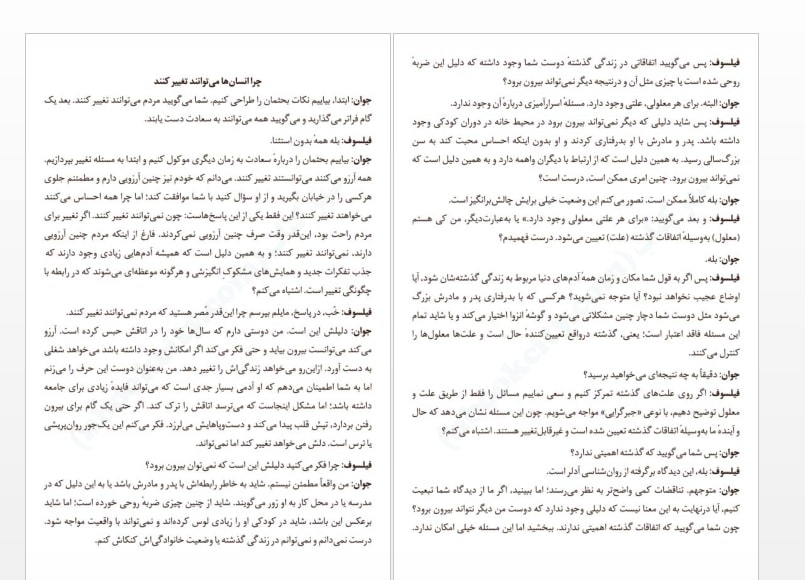 چرا انسان‌ها می‌توانند تغییر کنند
جوان: ابتدا، بیاییم نکات بحثمان را طراحی کنیم. شما می‌گویید مردم می‌توانند تغییر کنند. بعد یک
گام فراتر می‌گذارید و می‌گویید همه می‌توانند به سعادت دست یابند.
فیلسوف: بله همه بدون استثنا.
جوان: بیاییم بحثمان را دربارهٔ سعادت به زمان دیگری موکول کنیم و ابتدا به مسئله تغییر بپردازیم.
همه آرزو می‌کنند می‌توانستند تغییر کنند. می‌دانم که خودم نیز چنین آرزویی دارم و مطمئنم جلوی
هرکسی را در خیابان بگیرید و از او سؤال کنید با شما موافقت کند؛ اما چرا همه احساس می‌کنند
می‌خواهند تغییر کنند؟ این فقط یکی از این پاسخ‌هاست: چون نمی‌توانند تغییر کنند. اگر تغییر برای
مردم راحت بود، این‌قدر وقت صرف چنین آرزویی نمی‌کردند. فارغ از اینکه مردم چنین آرزویی
دارند، نمی‌توانند تغییر کنند؛ و به همین دلیل است که همیشه آدم‌هایی زیادی وجود دارند که
جذب تفکرات جدید و همایش‌های مشکوک انگیزشی و هرگونه موعظه‌ای می‌شوند که در رابطه با
چگونگی تغییر است. اشتباه می‌کنم؟
فیلسوف: خُب، در پاسخ، مایلم بپرسم چرا این‌قدر مُصر هستید که مردم نمی‌توانند تغییر کنند.
جوان: دلیلش این است. من دوستی دارم که سال‌ها خود را در اتاقش حبس کرده است. آرزو
می‌کند می‌توانست بیرون بیاید و حتی فکر می‌کند اگر امکانش وجود داشته باشد می‌خواهد شغلی
به دست آورد. ازاین‌رو می‌خواهد زندگی‌اش را تغییر دهد. من به‌عنوان دوست این حرف را می‌زنم
اما به شما اطمینان می‌دهم که او آدمی بسیار جدی است که می‌تواند فایدهٔ زیادی برای جامعه
داشته باشد؛ اما مشکل اینجاست که می‌ترسد اتاقش را ترک کند. اگر حتی یک گام برای بیرون
رفتن بردارد، تپش قلب پیدا می‌کند و دست‌وپاهایش می‌لرزد. فکر می‌کنم این یک‌جور روان‌پریشی
یا ترس است. دلش می‌خواهد تغییر کند اما نمی‌تواند.
فیلسوف: چرا فکر می‌کنید دلیلش این است که نمی‌توان بیرون برود؟
جوان: من واقعاً مطمئن نیستم. شاید به خاطر رابطه‌اش با پدر و مادرش باشد یا به این دلیل که در
مدرسه یا در محل کار به او زور می‌گویند. شاید از چنین چیزی ضربهٔ روحی خورده است؛ اما شاید
برعکس این باشد، شاید در کودکی او را زیادی لوس کرده‌اند و نمی‌تواند با واقعیت مواجه شود.
درست نمی‌دانم و نمی‌توانم در زندگی گذشته یا وضعیت خانوادگی‌اش کنکاش کنم.
فیلسوف: پس می‌گویید اتفاقاتی در زندگی گذشتهٔ دوست شما وجود داشته که دلیل این ضربهٔ
روحی شده است یا چیزی مثل آن و درنتیجه دیگر نمی‌تواند بیرون برود؟
جوان: البته. برای هر معلولی، علتی وجود دارد. مسئلهٔ اسرارآمیزی دربارهٔ آن وجود ندارد.
فیلسوف: پس شاید دلیلی که دیگر نمی‌تواند بیرون برود در محیط خانه در دوران کودکی وجود
داشته باشد. پدر و مادرش با او بدرفتاری کردند و او بدون اینکه احساس محبت کند به سن
بزرگ‌سالی رسید. به همین دلیل است که از ارتباط با دیگران واهمه دارد و به همین دلیل است که
نمی‌تواند بیرون برود. چنین امری ممکن است، درست است؟
جوان: بله کاملاً ممکن است. تصور می‌کنم این وضعیت خیلی برایش چالش‌برانگیز است.
فیلسوف: و بعد می‌گویید: «برای هر علتی معلولی وجود دارد.» یا به‌عبارت‌دیگر، من کی هستم
(معلول) به‌وسیلهٔ اتفاقات گذشته (علت) تعیین می‌شود. درست فهمیدم؟
جوان: بله.
فیلسوف: پس اگر به قول شما مکان و زمان همهٔ آدم‌های دنیا مربوط به زندگی گذشته‌شان شود، آیا
اوضاع عجیب نخواهد نبود؟ آیا متوجه نمی‌شوید؟ هرکسی که با بدرفتاری پدر و مادرش بزرگ
می‌شود مثل دوست شما دچار چنین مشکلاتی می‌شود و گوشهٔ انزوا اختیار می‌کند و یا شاید تمام
این مسئله فاقد اعتبار است؛ یعنی، گذشته درواقع تعیین‌کنندهٔ حال است و علت‌ها معلول‌ها را
کنترل می‌کنند.
جوان: دقیقاً به چه نتیجه‌ای می‌خواهید برسید؟
فیلسوف: اگر روی علت‌های گذشته تمرکز کنیم و سعی نماییم مسائل را فقط از طریق علت و
معلول توضیح دهیم، با نوعی «جبرگرایی» مواجه می‌شویم. چون این مسئله نشان می‌دهد که حال
و آیندهٔ ما به‌وسیلهٔ اتفاقات گذشته تعیین شده است و غیرقابل‌تغییر هستند. اشتباه می‌کنم؟
جوان: پس شما می‌گویید که گذشته اهمیتی ندارد؟
فیلسوف: بله، این دیدگاه برگرفته از روان‌شناسی آدلر است.
جوان: متوجهم. تناقضات کمی واضح‌تر به نظر می‌رسند؛ اما ببینید، اگر ما از دیدگاه شما تبعیت
کنیم، آیا درنهایت به این معنا نیست که دلیلی وجود ندارد که دوست من دیگر نتواند بیرون برود؟
چون شما می‌گویید که اتفاقات گذشته اهمیتی ندارند. ببخشید اما این مسئله خیلی امکان ندارد.